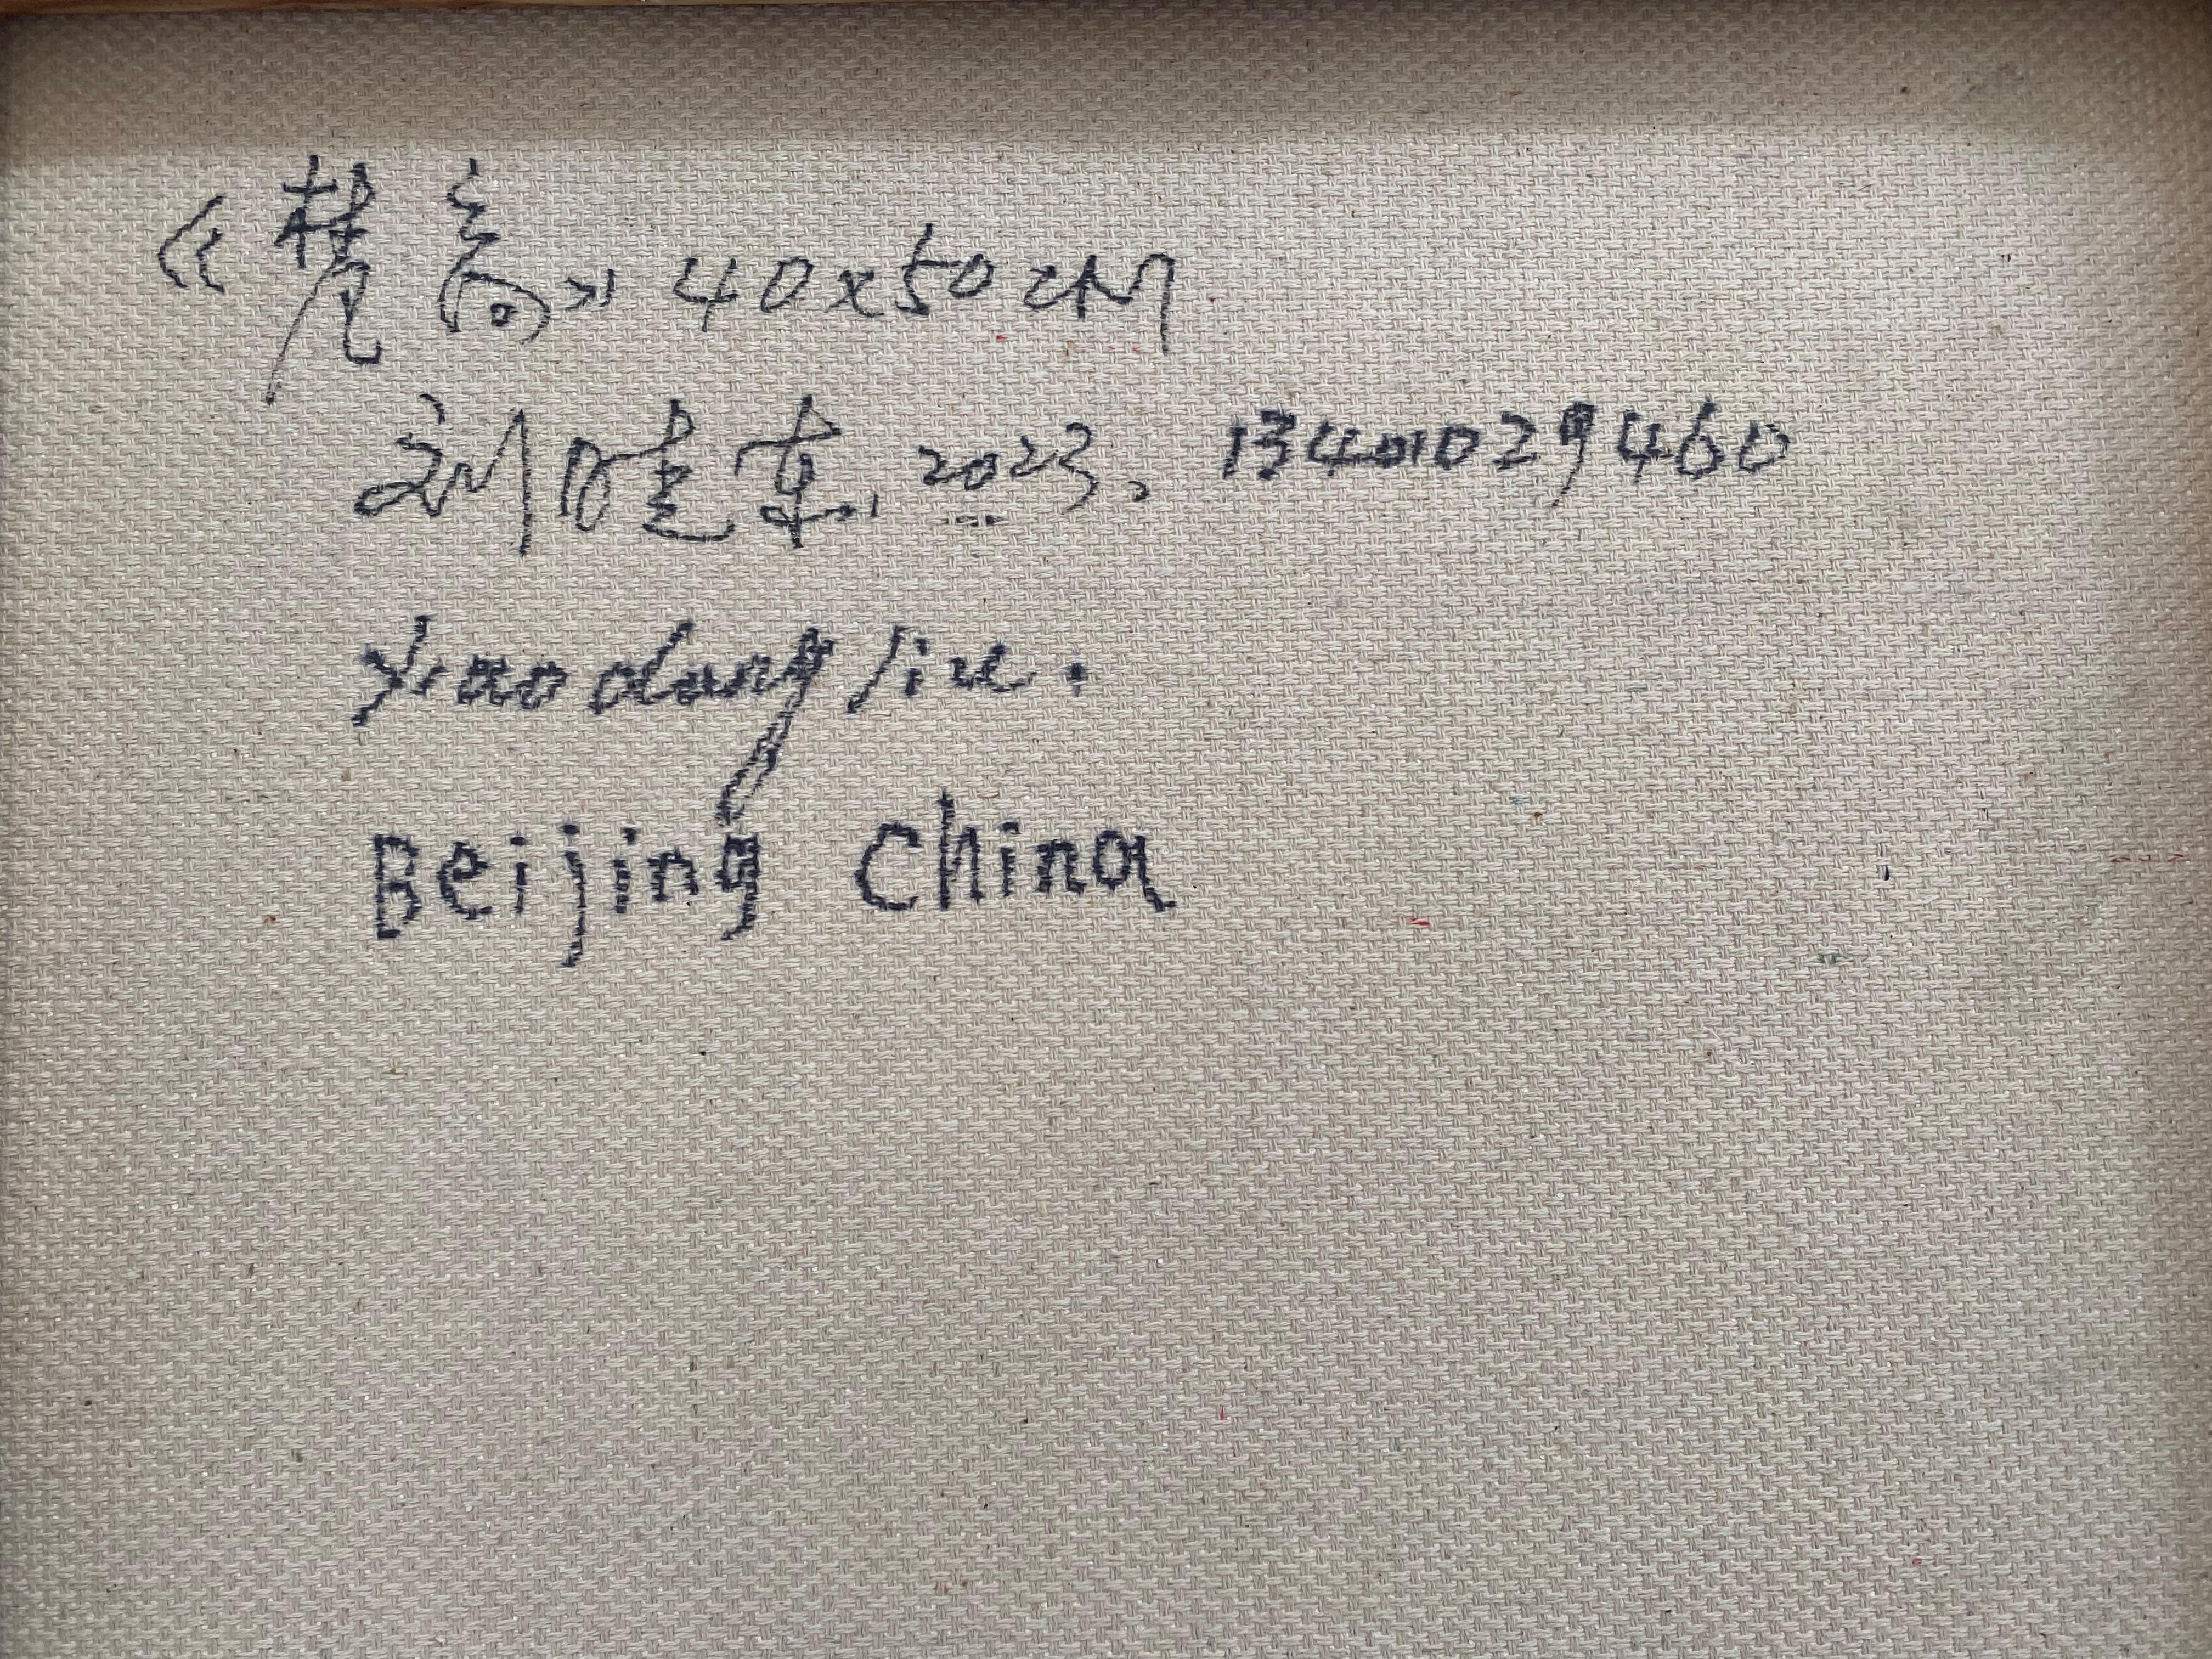 《梵高》 40x50cM
刘晓东, 2023. 13401029460
xiaodong liu.
Beijing China